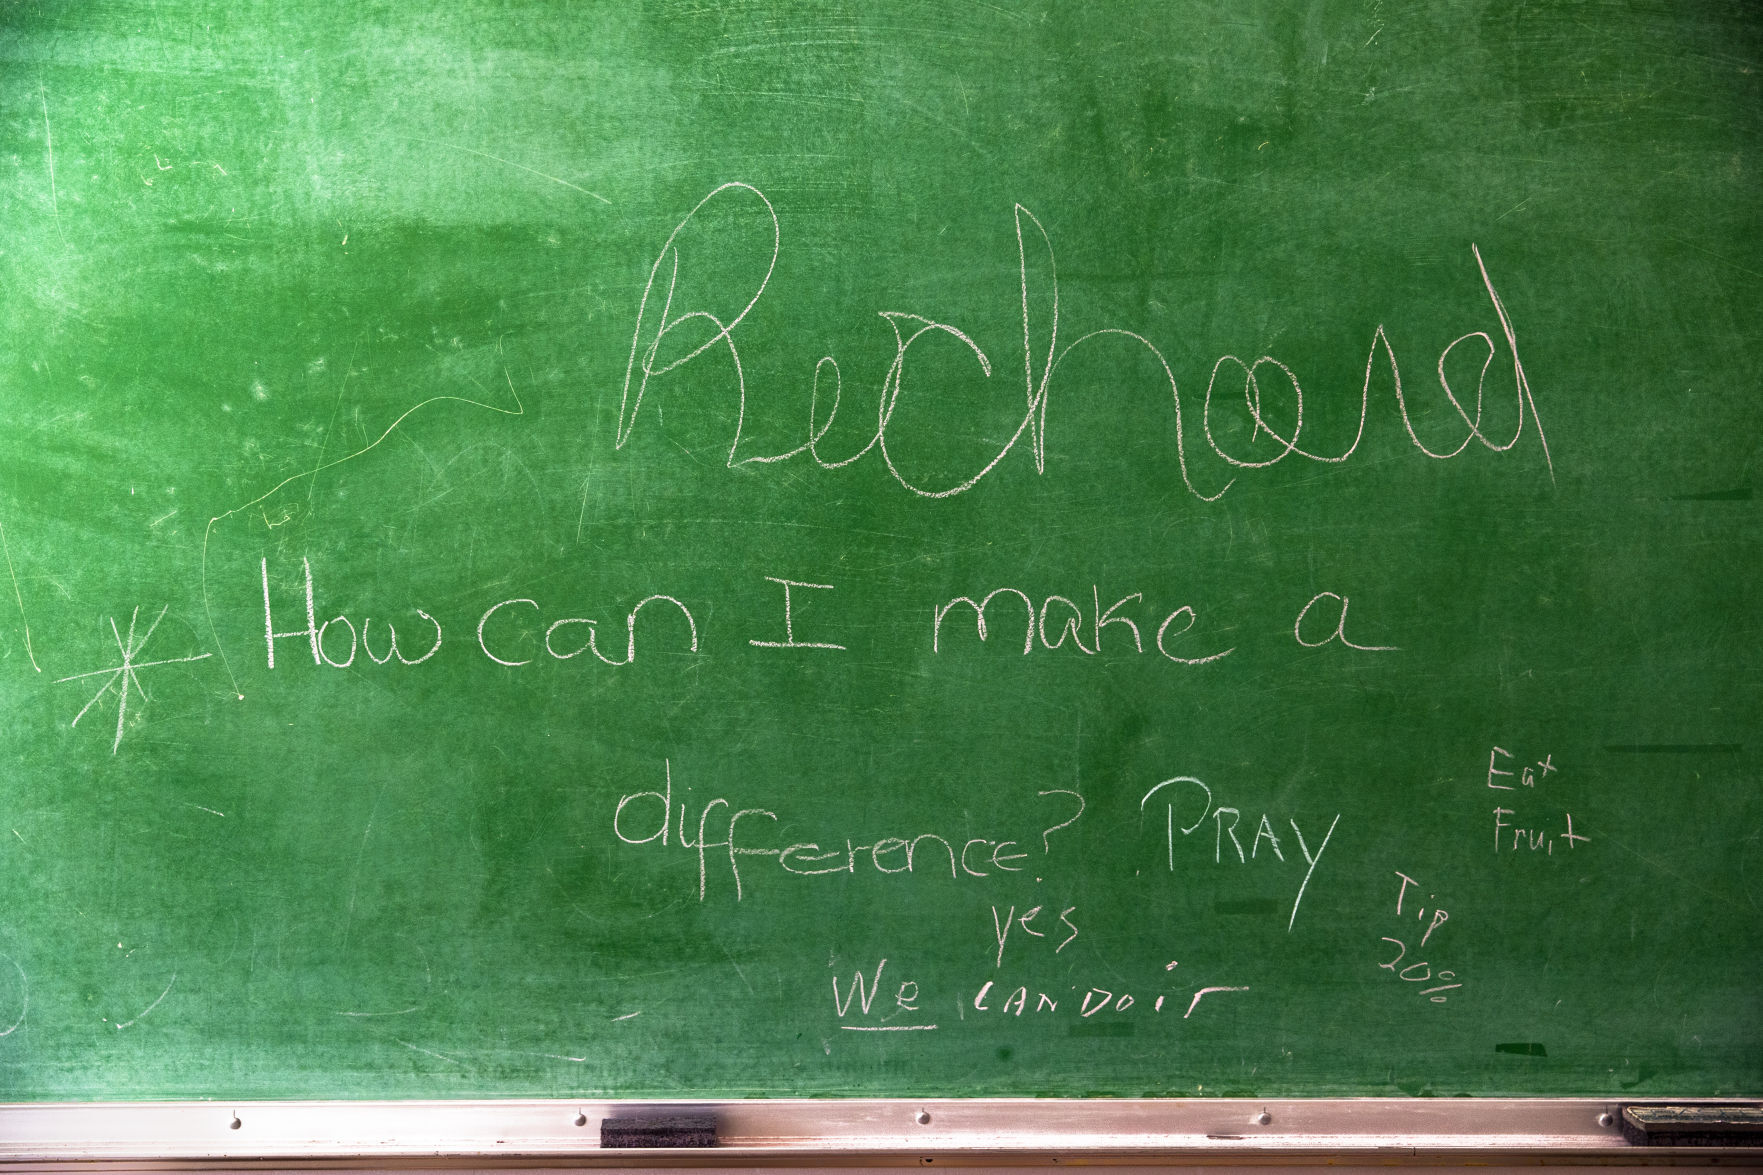 Richard
* How can I make a
difference? PRAY
Eat
Fruit
Tip
20%
yes
We CAN DO iT